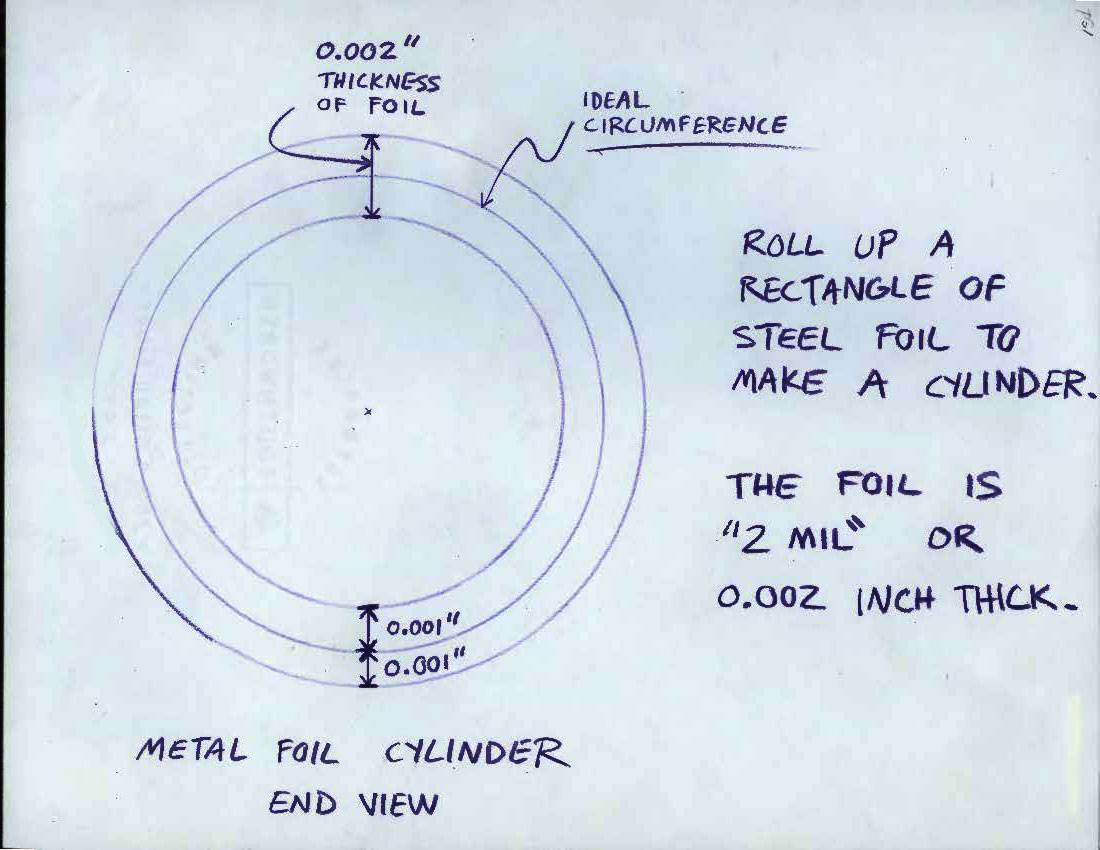 0.002"
THICKNESS
OF FOIL
IDEAL
CIRCUMFERENCE
ROLL UP A
RECTANGLE OF
STEEL FOIL TO
MAKE A CYLINDER.
THE FOIL IS
"2 MIL" OR
0.002 INCH THICK.
0.001"
0.001"
METAL FOIL CYLINDER
END VIEW